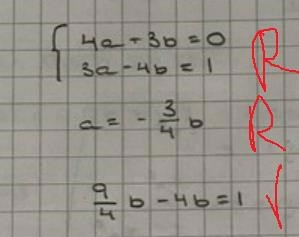 4a + 3b = 0 R
3a - 4b = 1
a = - 3/4 b R
9/4 b - 4b = 1 √